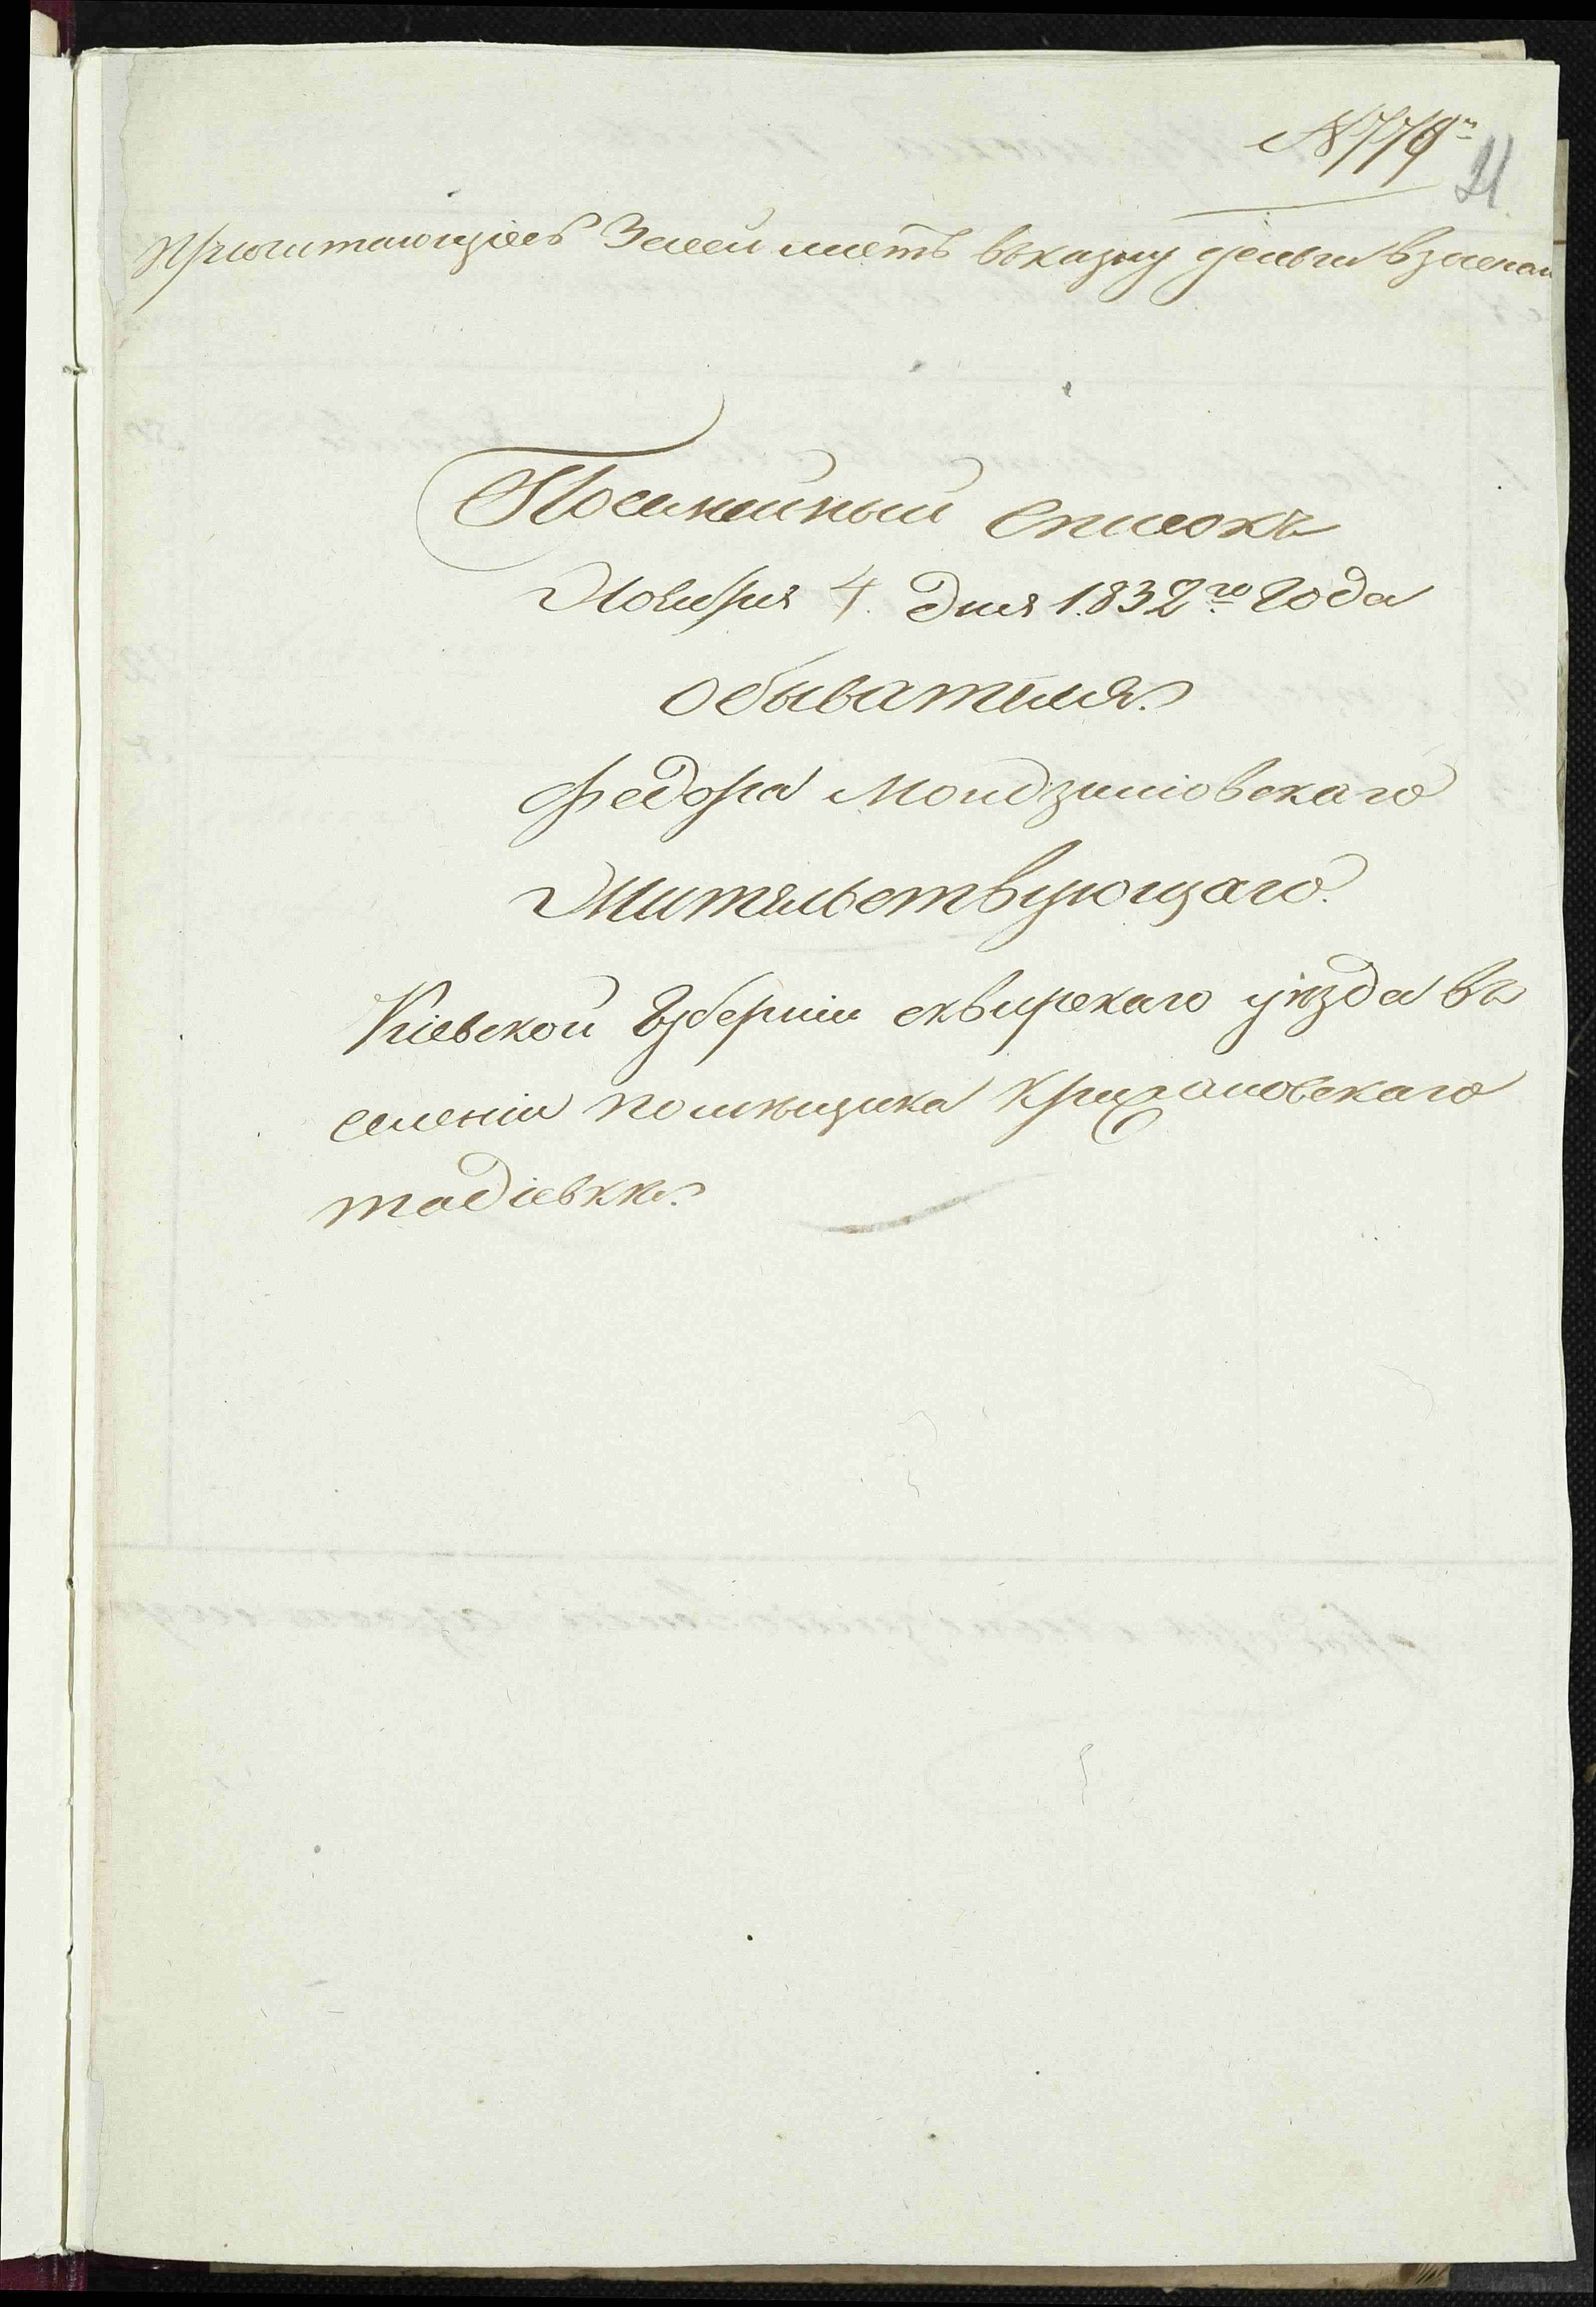 № 779й
21
Причитающіеся За сей листъ въ казну деньги взыскан
Посемейный списокъ
Ноября 4. дня 1832го Года
обывателя.
Федора Мондзиліовскаго
Жительствующаго.
Кіевской Губерніи сквирскаго уѣзда въ
селеніи помѣщика Крижановскаго
тадіевкѣ.